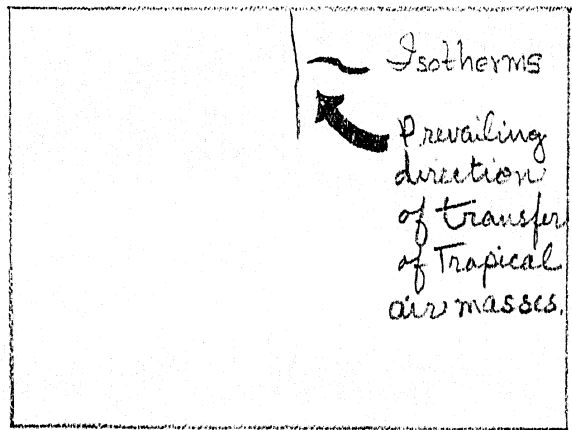 Isotherms
Prevailing
direction
of transfer
of Tropical
air masses.